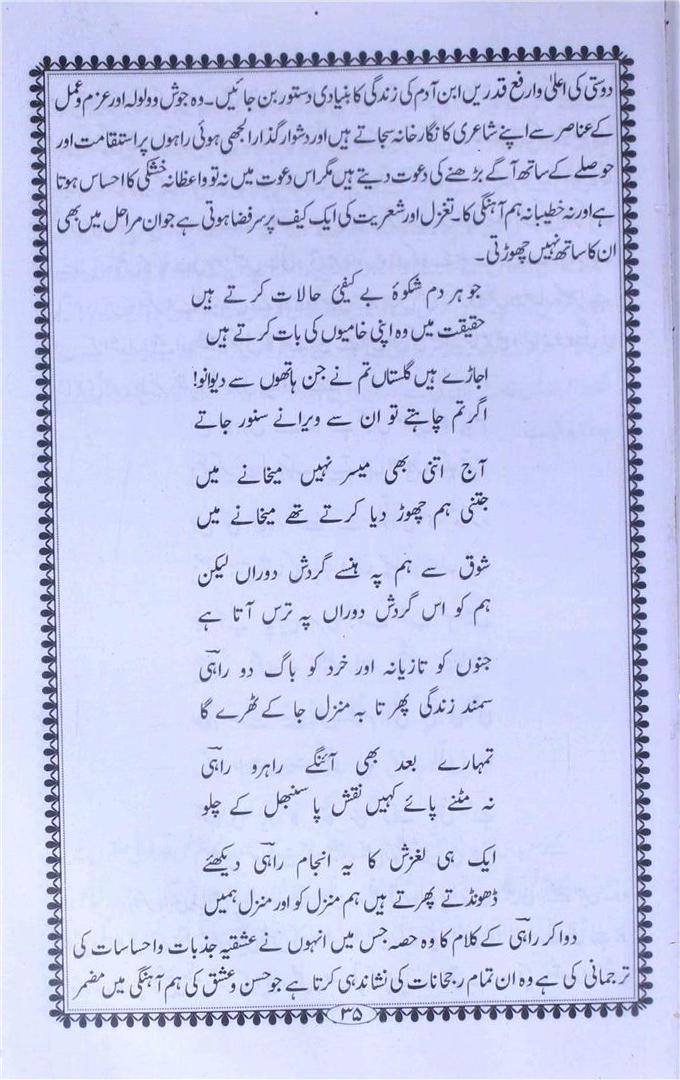 دوستی کی اعلیٰ وارفع قدریں ابن آدم کی زندگی کا بنیادی دستور بن جائیں۔ وہ جوش و ولولہ اور عزم و عمل
کے عناصر سے اپنے شاعری کا نگار خانہ سجاتے ہیں اور دشوار گذار الجھی ہوئی راہوں پر استقامت اور
حوصلے کے ساتھ آگے بڑھنے کی دعوت دیتے ہیں مگر اس دعوت میں نہ تو واعظانہ خشکی کا احساس ہوتا
ہے اور نہ خطیبانہ ہم آہنگی کا۔ تغزل اور شعریت کی ایک کیف پرسر فضا ہوتی ہے جو ان مراحل میں بھی
ان کا ساتھ نہیں چھوڑتی۔
جو ہر دم شکوۂ بے کیفیٔ حالات کرتے ہیں
حقیقت میں وہ اپنی خامیوں کی بات کرتے ہیں
اجاڑے ہیں گلستاں تم نے جن ہاتھوں سے دیوانو!
اگر تم چاہتے تو ان سے ویرانے سنور جاتے
آج اتنی بھی میسر نہیں میخانے میں
جتنی ہم چھوڑ دیا کرتے تھے میخانے میں
شوق سے ہم پہ ہنسے گردش دوراں لیکن
ہم کو اس گردش دوراں پہ ترس آتا ہے
جنوں کو تازیانہ اور خرد کو باگ دو راہیؔ
سمند زندگی پھر تا بہ منزل جا کے ٹھرے گا
تمہارے بعد بھی آئنگے راہرو راہیؔ
نہ مٹنے پائے کہیں نقش پا سنبھل کے چلو
ایک ہی لغزش کا یہ انجام راہیؔ دیکھئے
ڈھونڈتے پھرتے ہیں ہم منزل کو اور منزل ہمیں
دواکر راہیؔ کے کلام کا وہ حصہ جس میں انہوں نے عشقیہ جذبات و احساسات کی
ترجمانی کی ہے وہ ان تمام رجحانات کی نشاندہی کرتا ہے جو حسن و عشق کی ہم آہنگی میں مضمر
۳۵